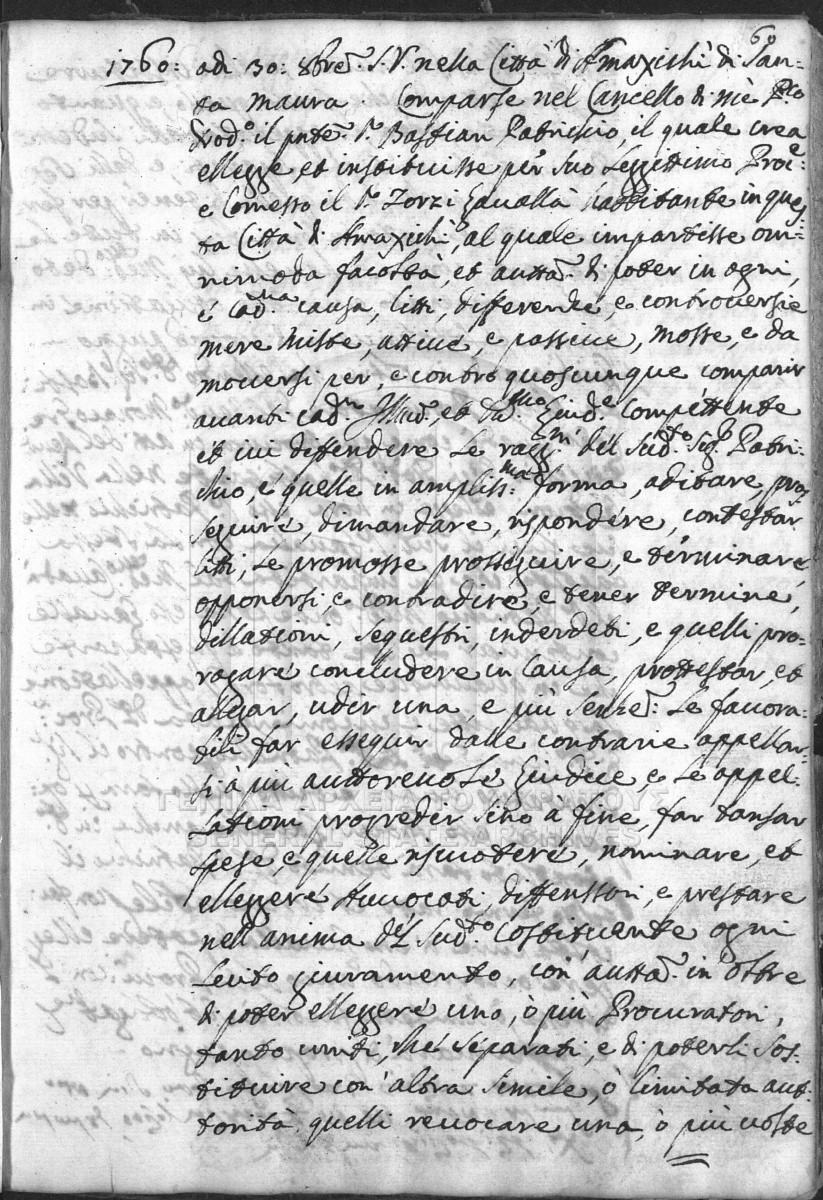 60
1760: adi 30: 8bre. S.V. nella Città di Amaxichì di San-
ta Maura. Comparse nel Cancello di mè P.co
Nod.o il pnte. Sr. Bastian Patrichio, il quale crea
ellegge, et instituisse per suo Leggittimo Proc.e
e Comesso il Sr. Zorzi Cavallà habbitante in ques-
ta Città di Amaxichì, al quale impartisse om-
nimoda facoltà, et autta. di poter in ogni,
è cad.una causa, litti, differenze, e controversie
mere miste, attive, e passive, mosse, e da
moversi per, e contro quoscunque comparir
avanti cad.n Illmo., et Giud.e Compettente
et ivi diffendere le raggni. del sud.to Sig.r Patri-
chio, e quelle in ampliss.ma forma, aditare, pro-
seguire, dimandare, rispondere, contestar
litti, le promosse prosseguire, e terminare,
opponersi, e contradire, e tener termine,
dillationi, sequestri, inderdeti, e quelli pro-
ragare concludere in Causa, prottestar, et
alegar, udir una, e più senze. Le favora-
bili far esseguir dalle contrarie appellar-
si à più auttorevole Giudice, e le appel-
lationi progredir sino a fine, far tansar
spese, e quelle riscuotere, nominare, et
elleggere Avvocati, diffenssori, e prestare
nell'anima del sud.to Costituente ogni
Lecito giuramento, con autta. in oltre
di poter elleggere uno, ò più Procuratori,
tanto uniti, che separati, e di poterli sos-
tituire con altra simile, ò limitata aut-
torità quelli revocare una, ò più volte
ΓΕΝΙΚΑ ΑΡΧΕΙΑ ΤΟΥ ΚΡΑΤΟΥΣ
GENERAL STATE ARCHIVES